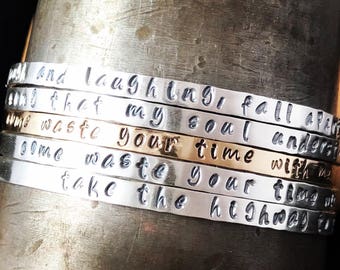 and laughing, fall
that my soul
waste your time with
some waste your time
take the highway